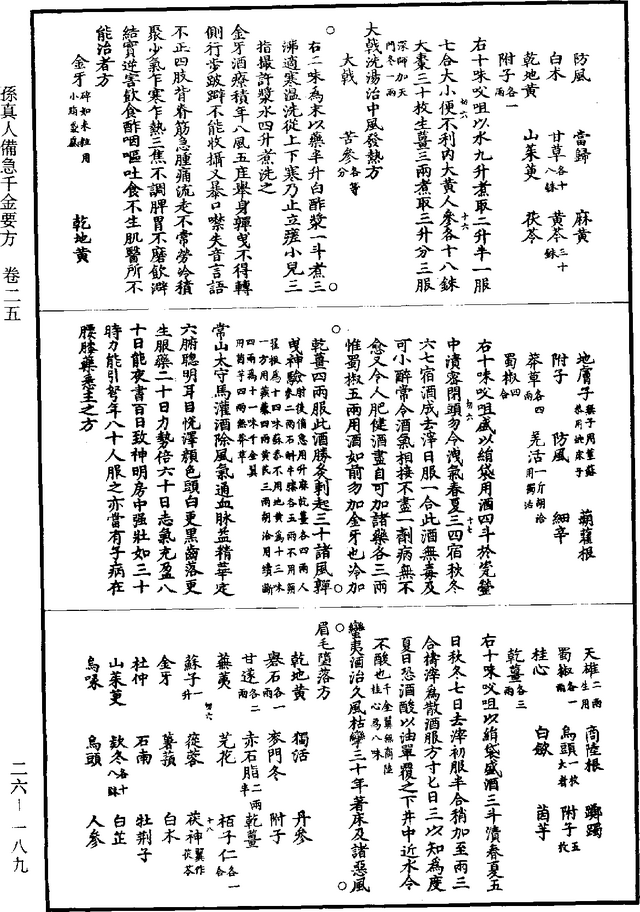 孫真人備急千金要方　卷二五
二六—一八九
防風　當歸　麻黃
白朮　甘草各十八銖　黃芩三十銖
乾地黃　山茱萸　茯苓
附子各一兩
右十味㕮咀以水九升煮取二升半一服
七合大小便不利內大黃人參各十八銖
大棗三十枚生薑三兩煮取三升分三服
深師加天門冬一兩
大戟洗湯治中風發熱方
大戟　苦參各等分
右二味為末以藥半升白酢漿一斗煮三
沸適寒溫洗從上下寒乃止立瘥小兒三
指撮許漿水四升煮洗之
金牙酒療積年八風五疰舉身嚲曳不得轉
側行步跛躃不能收攝又暴口噤失音言語
不正四肢背脊筋急腫痛流走不常勞冷積
聚少氣乍寒乍熱三焦不調脾胃不磨飲澼
結實逆害飲食酢咽嘔吐食不生肌醫所不
能治者方
金牙碎如米粒用小絹袋盛　乾地黃
地膚子無子用莖蘇恭用蛇床子　蒴藋根
附子　防風　細辛
莽草各四兩　羌活一斤胡洽用獨活
蜀椒四合
右十味㕮咀盛以絹袋用酒四斗於瓷罌
中漬密閉頭勿令洩氣春夏三四宿秋冬
六七宿酒成去滓日服一合此酒無毒及
可小醉常令酒氣相接不盡一劑病無不
愈又令人肥健酒盡自可加諸藥各三兩
惟蜀椒五兩用酒如前勿加金牙也冷加
乾薑四兩服此酒勝灸刺起三十諸風嚲
曳神驗
常山太守馬灌酒除風氣通血脉益精華定
六腑聰明耳目悅澤顏色頭白更黑齒落更
生服藥二十日力勢倍六十日志氣充盈八
十日能夜書百日致神明房中強壯如三十
時力能引弩年八十人服之亦當有子病在
腰膝藥悉主之方
天雄二兩生用　商陸根　躑躅
蜀椒各一兩　烏頭一枚大者　附子五枚
桂心　白斂　茵芋
乾薑各三兩
右十味㕮咀以絹袋盛酒三斗漬春夏五
日秋冬七日去滓初服半合稍加至兩三
合擣滓為散酒服方寸匕日三以知為度
夏日恐酒酸以油單覆之下井中近水令
不酸也千金翼無商陸桂心為八味
蠻夷酒治久風枯攣三十年著床及諸惡風
眉毛墮落方
乾地黃　獨活　丹參
礜石各一兩　麥門冬　附子
甘遂各二兩　赤石脂二兩半　乾薑
蕪荑　芫花　栢子仁各一合
蘇子一升　蓯蓉　茯神翼作茯苓
金牙　薯蕷　白朮
杜仲　石南　牡荆子
山茱萸　款冬各十八銖　白芷
烏喙　烏頭　人參